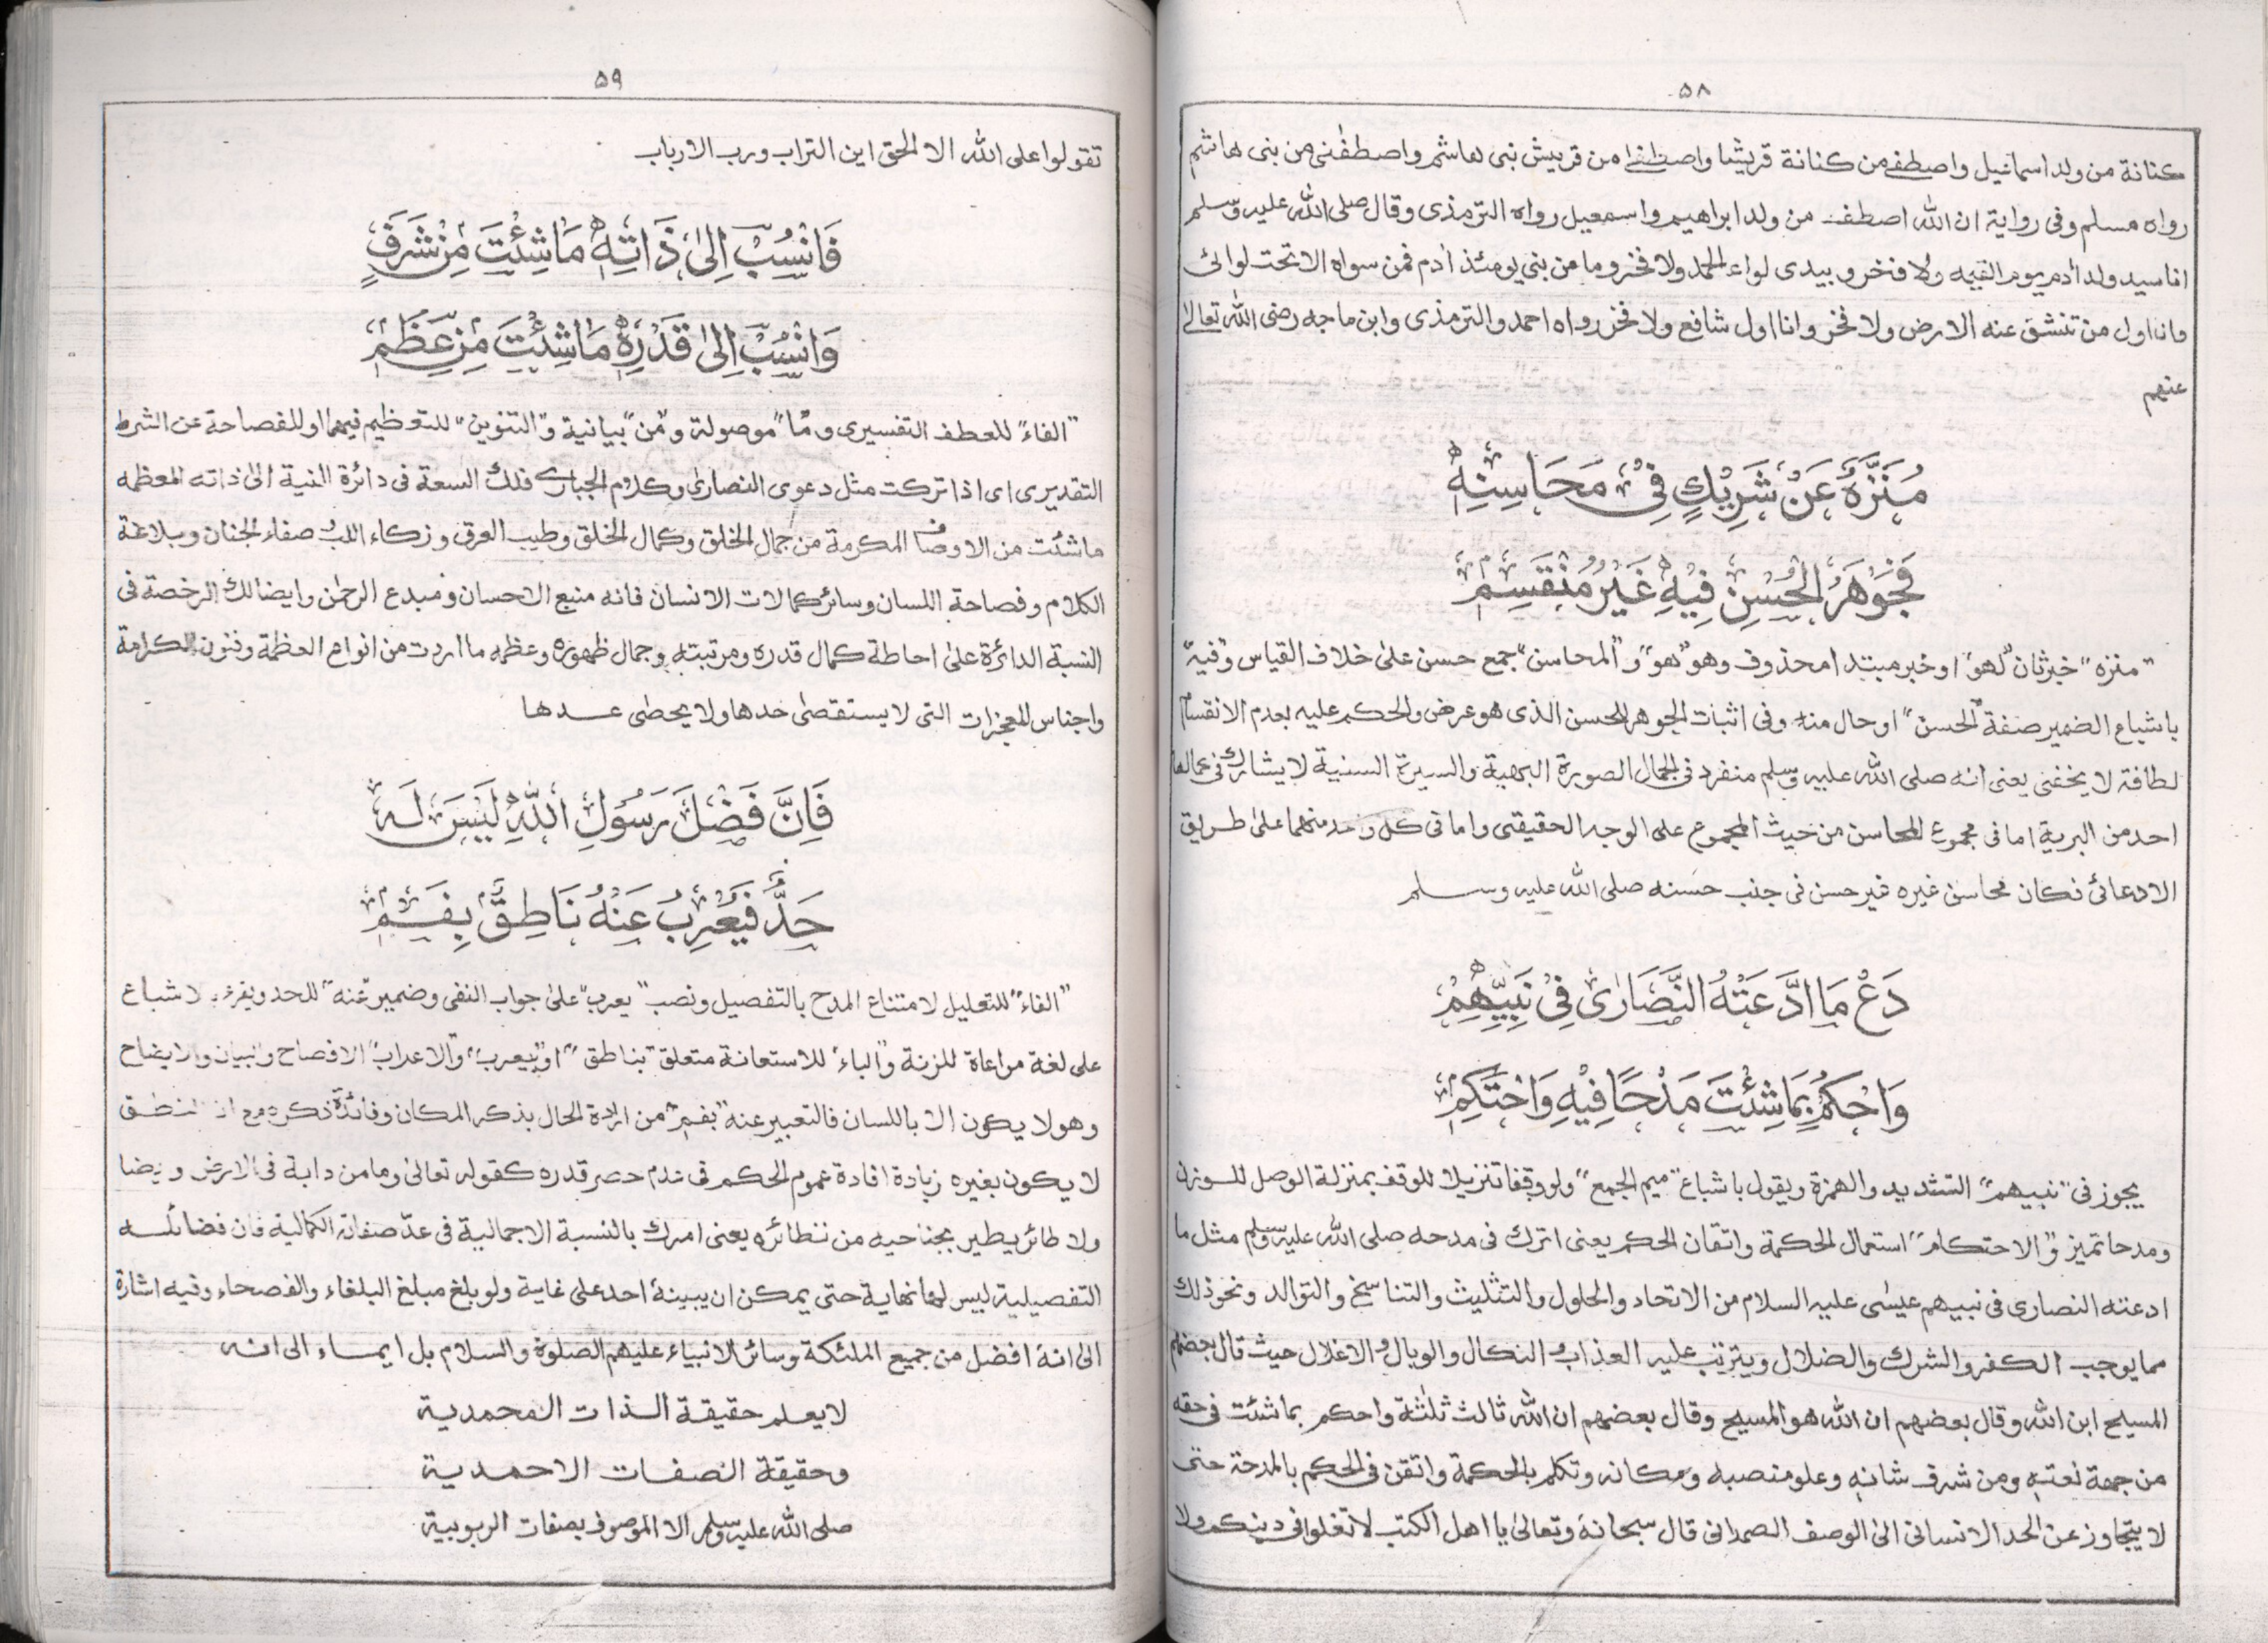 ۵۸
كنانة من ولد اسماعيل واصطفے من كنانة قريشا واصطفے من قريش بنى هاشم واصطفٰنى من بنى هاشم
رواه مسلم وفى رواية ان الله اصطفے من ولد ابراهيم واسمعيل رواه الترمذى وقال صلى الله عليه وسلم
انا سيد ولد اٰدم يوم القيمه ولا فخر و بيدى لواء الحمد ولا فخر وما من بنى يومئذ اٰدم فمن سواه الا تحت لوائى
وانا اول من تنشق عنه الارض ولا فخر وانا اول شافع ولا فخر رواه احمد والترمذى وابن ماجه رضى الله تعالےٰ
عنهم
مُنَزَّهٌ عَنْ شَرِيْكٍ فِىْ مَحَاسِنِهٖ
فَجَوْهَرُ الْحُسْنِ فِيْهِ غَيْرُ مُنْقَسِمٖ
"منزه" خبر ثان "لهو" او خبر مبتدا محذوف وهو "هو" و"المحاسن" جمع حسن علىٰ خلاف القياس و"فيه"
باشباع الضمير صفة "الحسن" او حال منه وفى اثبات الجوهر للحسن الذى هو عرض والحكم عليه بعدم الانقسام
لطافة لا يخفى يعنى انه صلى الله عليه وسلم منفرد فى الجمال الصورة البهية والسيرة السنية لا يشارك فى عمالها
احد من البرية اما فى مجموع المحاسن من حيث المجموع على الوجه الحقيقى واما فى كل واحد منهما علىٰ طريق
الادعائى فكان محاسن غيره غير حسن فى جنب حسنه صلى الله عليه وسلم
دَعْ مَا ادَّعَتْهُ النَّصَارٰى فِىْ نَبِيِّهِمْ
وَاحْكُمْ بِمَا شِئْتَ مَدْحًا فِيْهِ وَاحْتَكِمٖ
يجوز فى "نبيهم" التشديد والهمزة ويقول باشباع "ميم الجمع" ولو وقفا تنزيلا للوقف بمنزلة الوصل للوزن
ومدحا تميز و"الاحتكام" استعمال الحكمة واتقان الحكم يعنى اترك فى مدحه صلى الله عليه وسلم مثل ما
ادعته النصارى فى نبيهم عيسٰى عليه السلام من الاتحاد والحلول والتثليث والتناسخ والتوالد ونحو ذلك
مما يوجب الكفر والشرك والضلال ويترتب عليه العذاب و النكال والوبال و الاغلال حيث قال بعضهم
المسيح ابن الله وقال بعضهم ان الله هو المسيح وقال بعضهم ان الله ثالث ثلٰثة واحكم بما شئت فى حقه
من جهة نعته ومن شرف شانه وعلو منصبه ومكانه وتكلم بالحكمة واتقن فى الحكم بالمدحة حتى
لا يتجاوز عن الحد الانسانى الى الوصف الصمدانى قال سبحانه وتعالىٰ يا اهل الكتٰب لا تغلوا فى دينكم ولا
۵۹
تقولوا على الله الا الحق اين التراب ورب الارباب
فَانْسُبْ اِلىٰ ذَاتِهٖ مَا شِئْتَ مِنْ شَرَفٍ
وَانْسُبْ اِلىٰ قَدْرِهٖ مَا شِئْتَ مِنْ عَظَمٖ
"الفاء" للعطف التفسيرى و"ما" موصولة و"من" بيانية و"التنوين" للتعظيم فيهما او للفصاحة عن الشرط
التقديرى اى اذا تركت مثل دعوى النصارىٰ وكلام الجبارى فلك السعة فى دائرة النية الىٰ ذاته المعظمه
ما شئت من الاوصاف المكرمة من جمال الخلق وكمال الخلق وطيب العرق وزكاء اللب و صفاء الجنان وبلاغة
الكلام وفصاحة اللسان وسائر كمالات الانسان فانه منبع الاحسان ومبدع الرحمٰن وايضا لك الرخصة فى
النسبة الدائرة علىٰ احاطة كمال قدره ومرتبته وجمال ظهوره وعظمه ما اردت من انواع العظمة وفنون الكرامة
واجناس المعجزات التى لا يستقصىٰ حدها ولا يحصٰى عدها
فَاِنَّ فَضْلَ رَسُوْلِ اللهِ لَيْسَ لَهٗ
حَدٌّ فَيُعْرِبَ عَنْهُ نَاطِقٌ بِفَمٖ
"الفاء" للتعليل لامتناع المدح بالتفصيل ونصب "يعرب" علىٰ جواب النفى وضمير "عنه" للحد ويقرء بالاشباع
على لغة مراعاة للزنة و"الباء" للاستعانة متعلق "بناطق" او "بيعرب" و"الاعراب" الافصاح والبيان والايضاح
وهو لا يكون الا باللسان فالتعبير عنه "بفم" من ارادة الحال بذكر المكان وفائدة ذكره مع ان النطق
لا يكون بغيره زيادة افادة عموم الحكم فى عدم حصر قدره كقوله تعالىٰ وما من دابة فى الارض وايضا
ولا طائر يطير بجناحيه من نظائره يعنى امرك بالنسبة الاجمالية فى عدّ صفاته الكمالية فان فضائله
التفصيلية ليس لها نهاية حتى يمكن ان يبينه احد على غاية ولو بلغ مبلغ البلغاء والفصحاء وفيه اشارة
الى انه افضل من جميع الملٰئكة وسائر الانبياء عليهم الصلوة والسلام بل ايماء الى انه
لا يعلم حقيقة الذات المحمدية
وحقيقة الصفات الاحمدية
صلى الله عليه وسلم الا الموصوف بصفات الربوبية